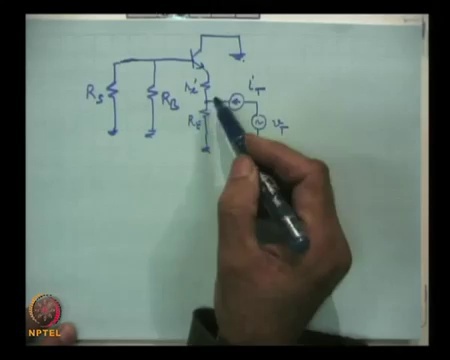 R_S
R_B
r_e'
R_E
i_T
v_T
NPTEL